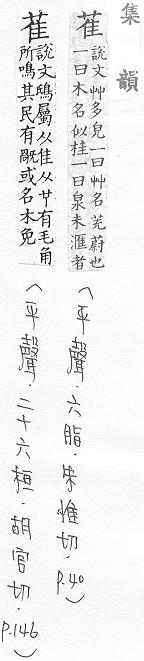 集韻
萑 說文艸多皃一曰艸名茺蔚也
一曰木名似桂一曰泉未滙者
(平聲．六脂．朱惟切．P.40)
萑 說文鴟屬从隹从𦫳有毛角
所鳴其民有旤或名木兔
(平聲．二十六桓．胡官切．P.146)